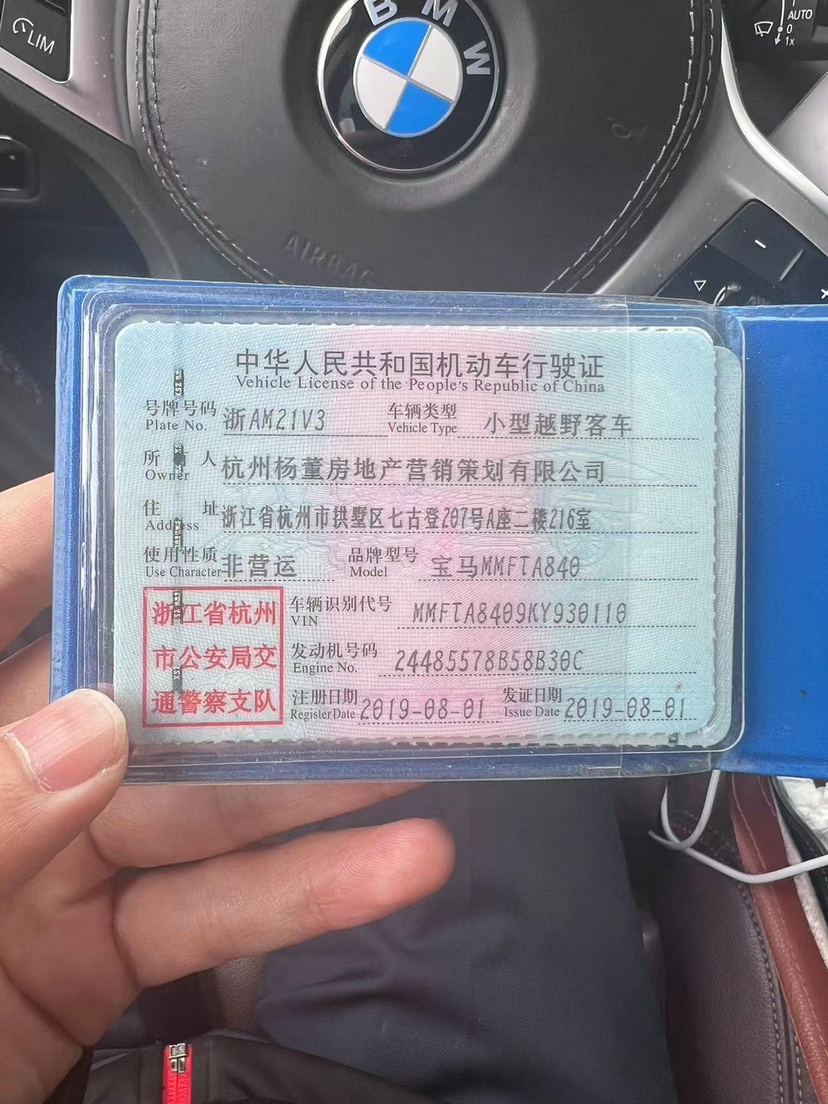 LIM
BMW
AUTO
0
1x
AIRBAG
中华人民共和国机动车行驶证
Vehicle License of the People's Republic of China
号牌号码 浙AM21V3 车辆类型 小型越野客车
Plate No. Vehicle Type
所 人 杭州杨董房地产营销策划有限公司
Owner
住 址 浙江省杭州市拱墅区七古登207号A座二楼216室
Address
使用性质 非营运 品牌型号 宝马MMFTA840
Use Character Model
浙江省杭州 车辆识别代号 MMFTA8409KY930110
VIN
市公安局交 发动机号码 24485578B58B30C
Engine No.
通警察支队 注册日期 2019-08-01 发证日期 2019-08-01
Register Date Issue Date